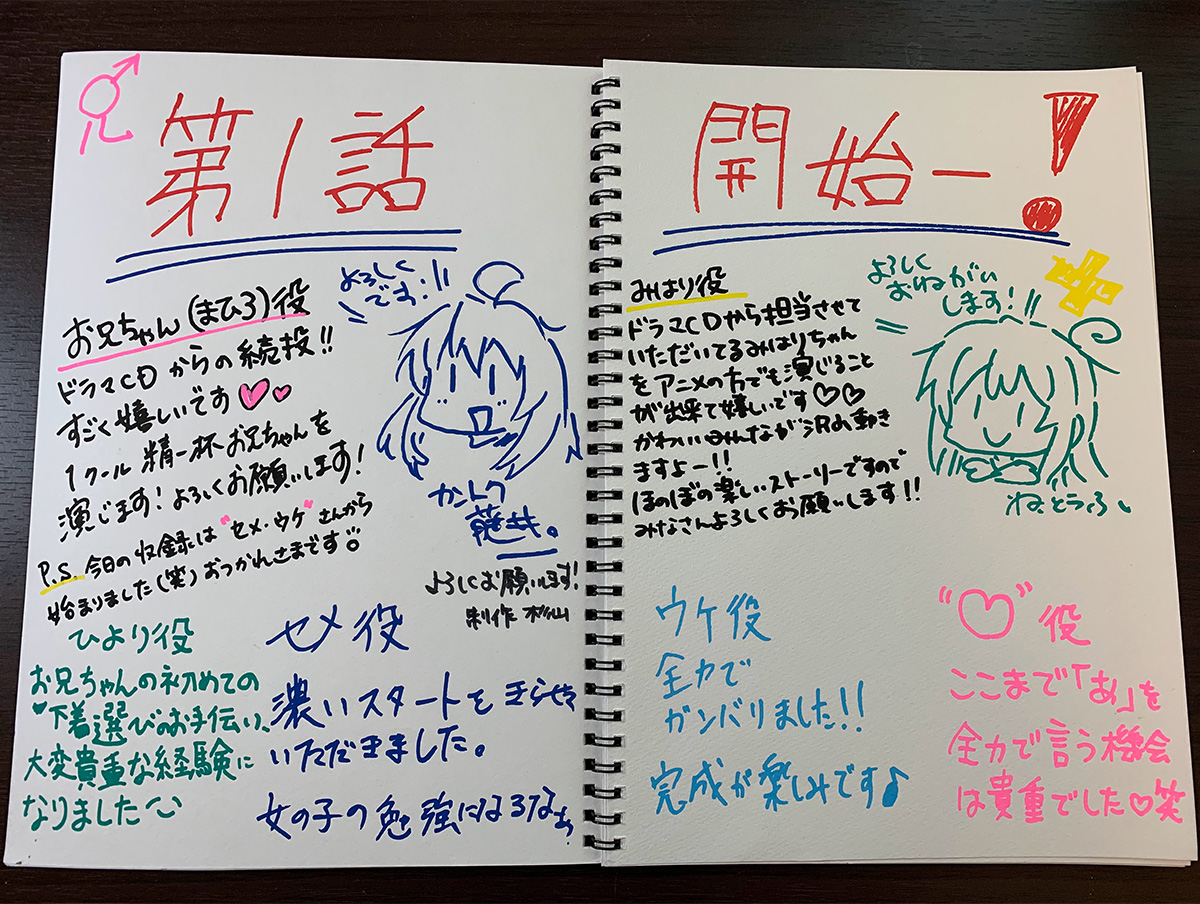 第1話
開始ー!
お兄ちゃん(まひろ)役
ドラマCDからの続投!!
すごく嬉しいです♡♡
1クール 精一杯 お兄ちゃんを
演じます! よろしくお願いします!
P.S. 今日の収録は"セメ・ウケ"さんから
始まりました(笑)おつかれさまです
よろしく
です!!!
カントク
藤井。
よろしくお願いします!
制作 杉山
ひより役
お兄ちゃんの初めての
下着選びのお手伝い、
大変貴重な経験に
なりました
セメ役
濃いスタートをきらせて
いただきました。
女の子の勉強になるなぁ
みはり役
ドラマCDから担当させて
いただいてるみはりちゃん
をアニメの方でも演じること
が出来て嬉しいです♡♡
かわいいみんなが沢山動き
ますよー!!
ほのぼの楽しいストーリーですので
みなさんよろしくお願いします!!
よろしく
おねがい
します!!!
ねことうふ
ウケ役
全力で
ガンバリました!!
完成が楽しみです♪
"♡"役
ここまで「あ」を
全力で言う機会
は貴重でした♡笑